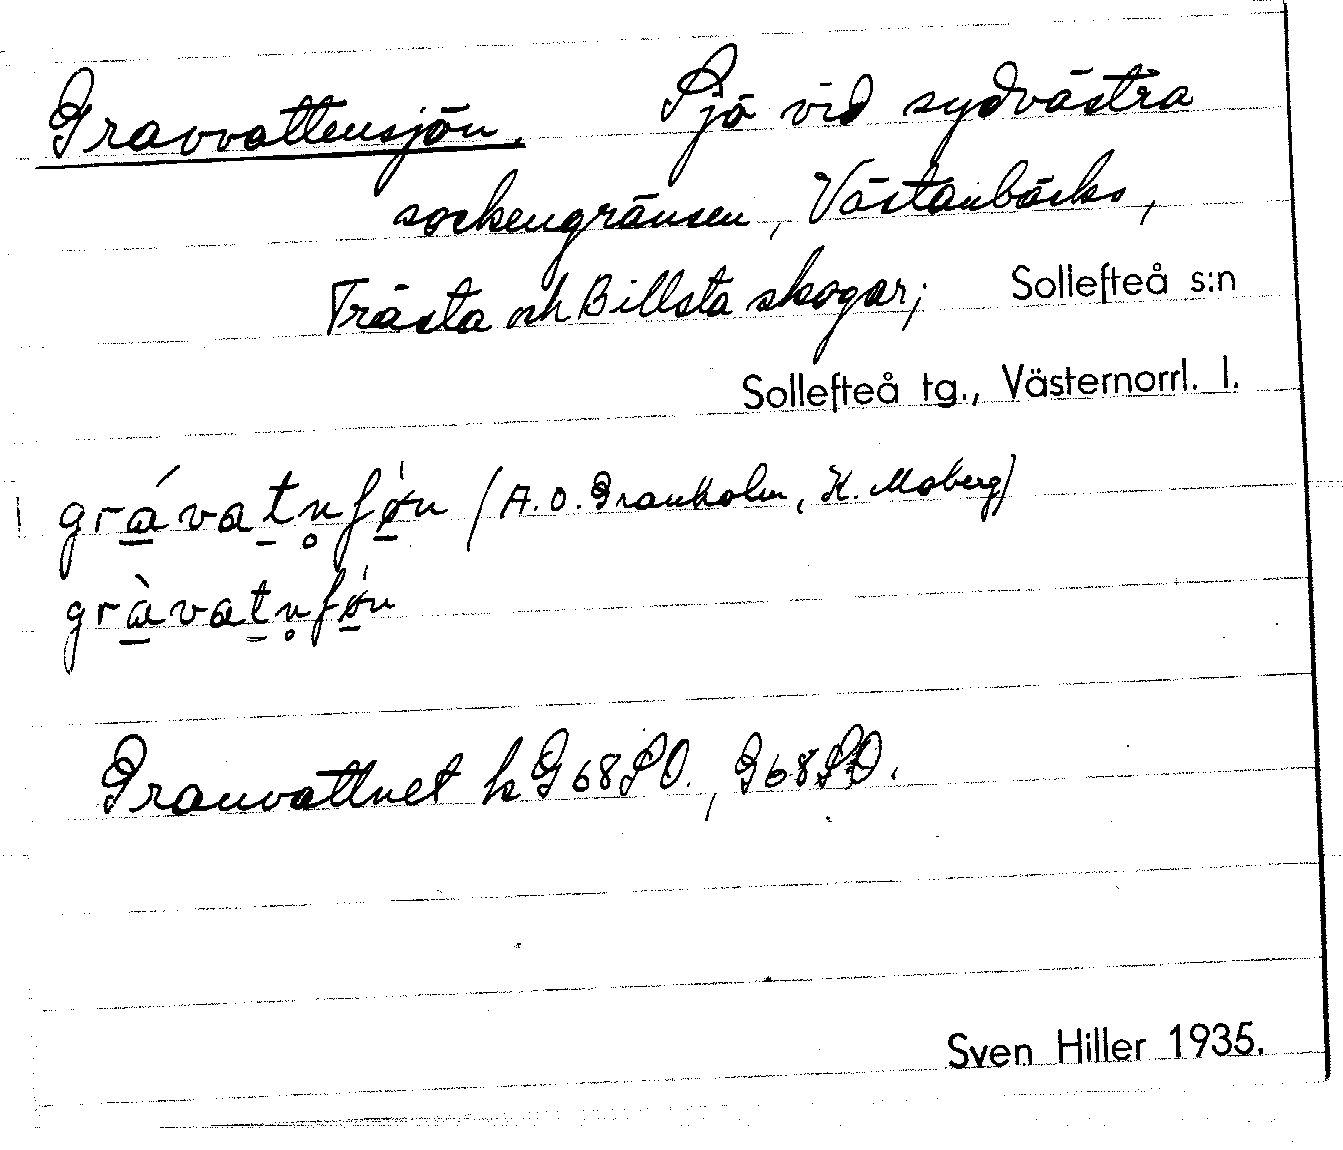 Gravvattensjön. Sjö vid sydvästra
sockengränsen, Västanbäcks,
Trästa och Billsta skogar; Sollefteå s:n
Sollefteå tg., Västernorrl. l.
grávatn̥ʃǿn (A.O. Granholm, K. Moberg)
gràvatn̥ʃǿn
Granvattnet k G68SO., G68SO.
Sven Hiller 1935.